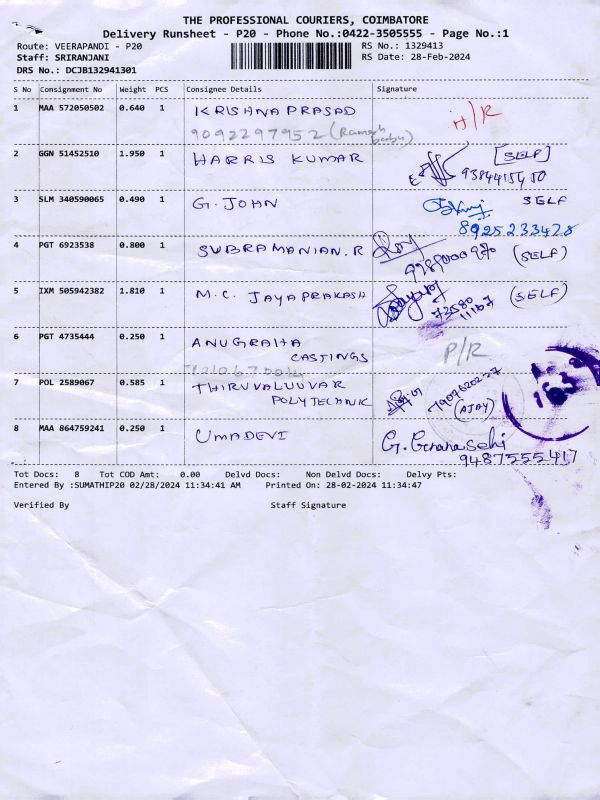 THE PROFESSIONAL COURIERS, COIMBATORE
Delivery Runsheet - P20 - Phone No.:0422-3505555 - Page No.:1
Route: VEERAPANDI - P20
RS No.: 1329413
Staff: SRIRANJANI
RS Date: 28-Feb-2024
DRS No.: DCJB132941301
S No Consignment No Weight PCS Consignee Details Signature
1 MAA 572050502 0.640 1 KRISHNA PRASAD H/R
9092297952 (Ramesh babu)
2 GGN 51452510 1.950 1 HARRIS KUMAR [SELF]
3 SLM 340590065 0.490 1 G. JOHN SELF
8925233428
4 PGT 6923538 0.800 1 SUBRAMANIAN. R (SELF)
5 IXM 505942382 1.810 1 M. C. JAYAPRAKASH (SELF)
73580
11167
6 PGT 4735444 0.250 1 ANUGRAHA P/R
CASTINGS
7 POL 2589067 0.585 1 THIRUVALUUVAR
POLYTECHNIC (AJAY)
8 MAA 864759241 0.250 1 UMADEVI G. Gnanasehi
9487555417
Tot Docs: 8 Tot COD Amt: 0.00 Delvd Docs: Non Delvd Docs: Delvy Pts:
Entered By :SUMATHIP20 02/28/2024 11:34:41 AM Printed On: 28-02-2024 11:34:47
Verified By Staff Signature